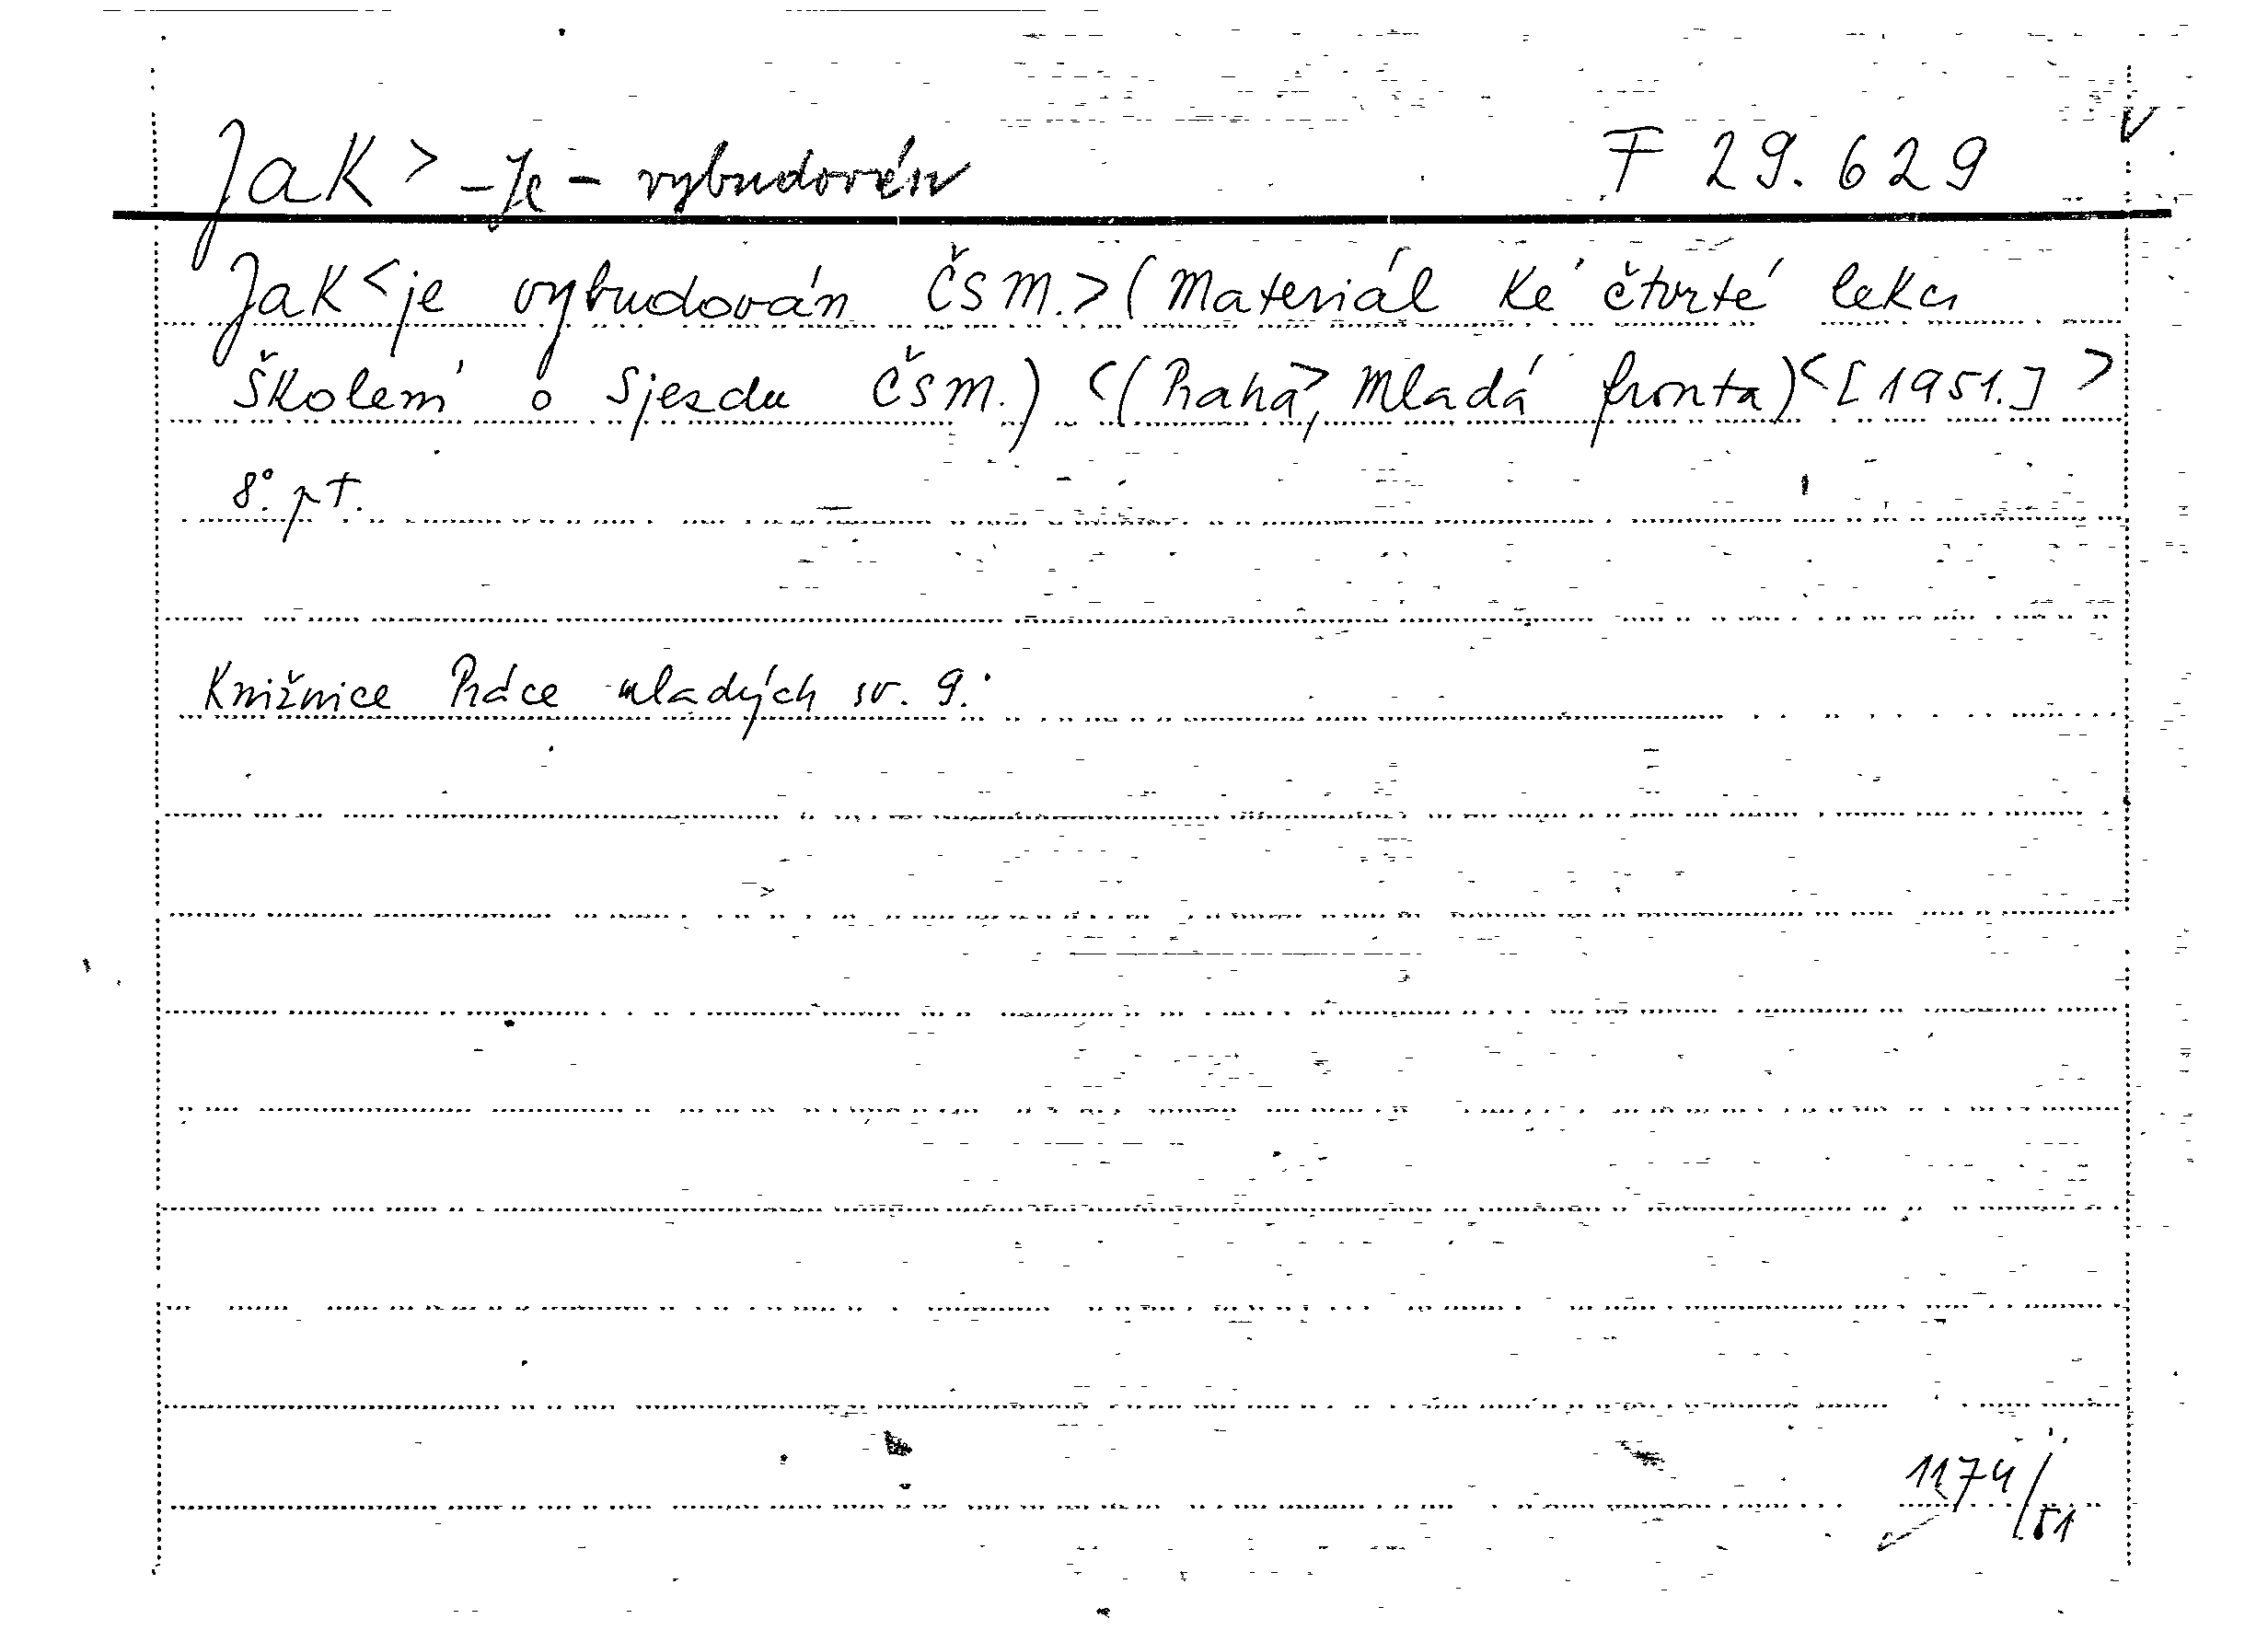 Jak > - Je - vybudován F 29.629 v
Jak < je vybudován ČSM. > (Materiál ke čtvrté lekci
školení o sjezdu ČSM.) < (Praha >, Mladá fronta) < [1951.] >
8°. pt.
Knižnice Práce mladých sv. 9.
1174/51